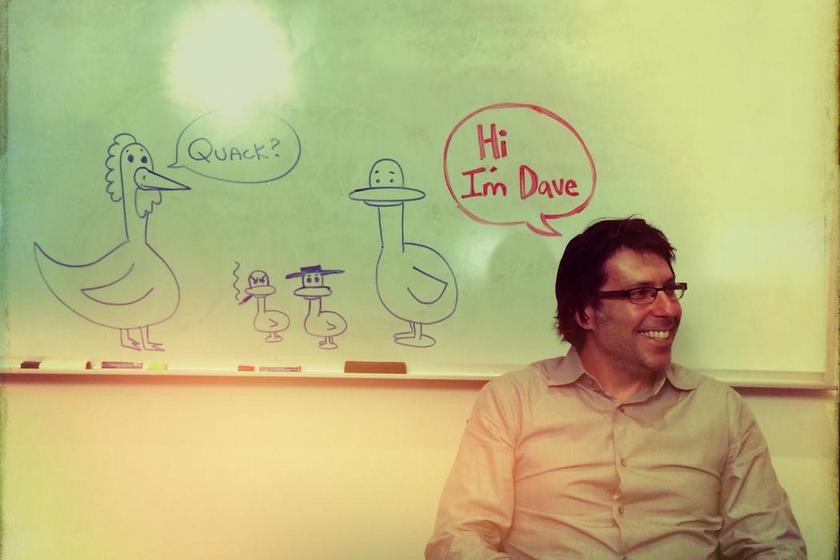 Quack?
Hi
I'm Dave